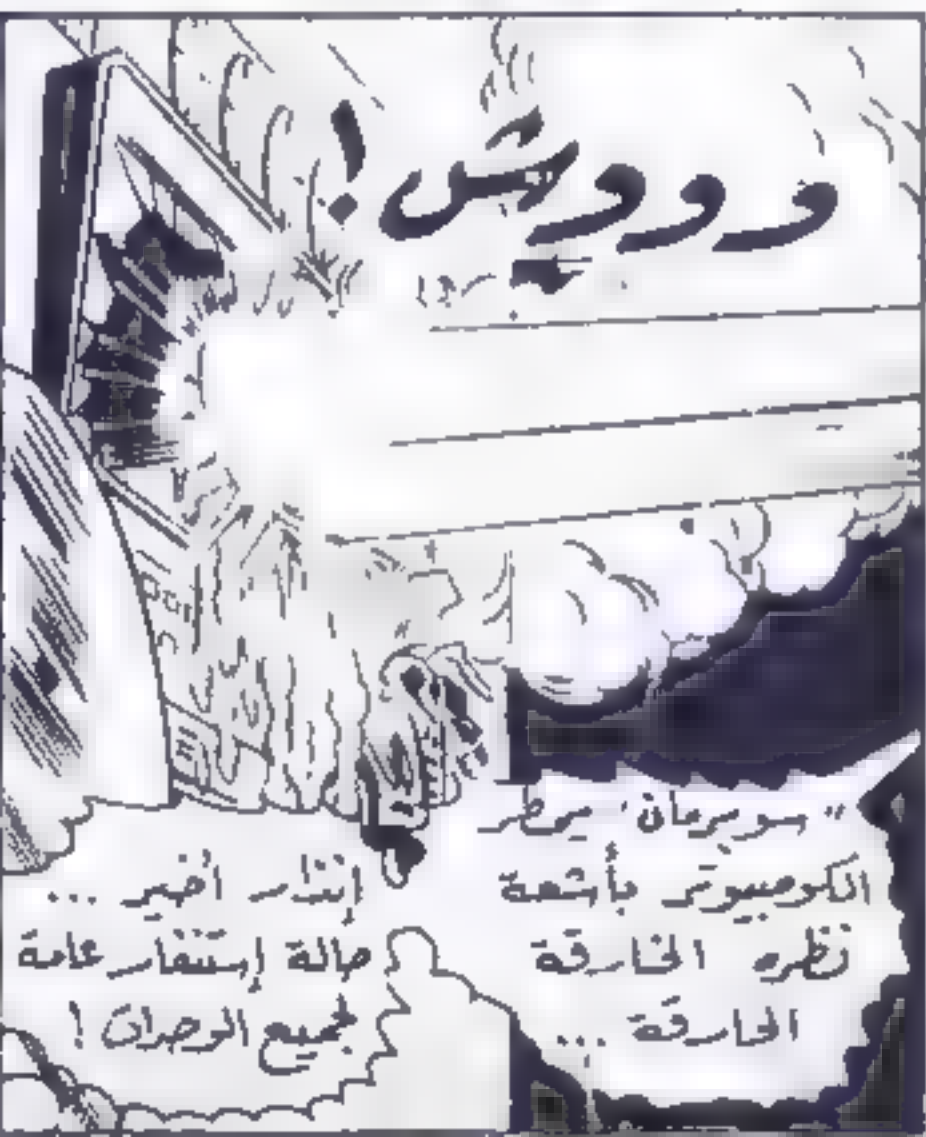 وووش!
"سوبرمان" يمطر
الكومبيوتر بأشعة
نظره الخارقة
الحارقة ...
إنذار أخير ...
حالة إستنفار عامة
لجميع الوحدات!